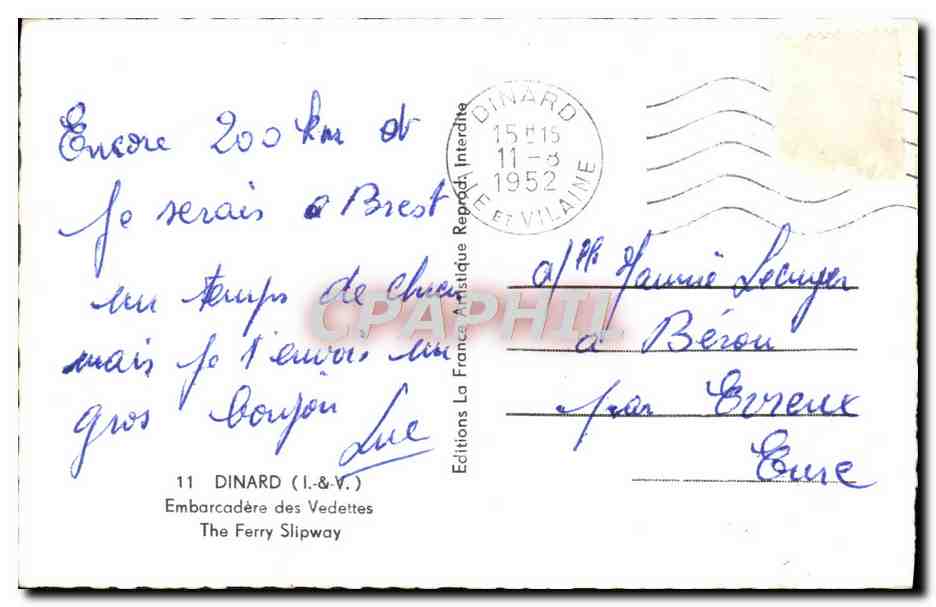 Encore 200 km et
je serais a Brest
un temps de chien
mais je t'envois un
gros bonjour
Luc
11 DINARD (I.-&-V.)
Embarcadère des Vedettes
The Ferry Slipway
Editions La France Artistique Reprod. Interdite
DINARD
15 H 15
11-8
1952
ILLE ET VILAINE
CPAPHIL
Lecuyer
à Bérou
par Evreux
Eure